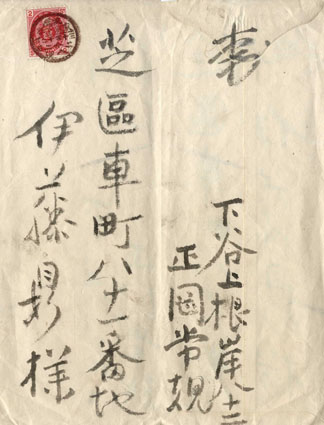 芝區車町八十一番地
伊藤鼎様
下谷上根岸八十二
正岡常規